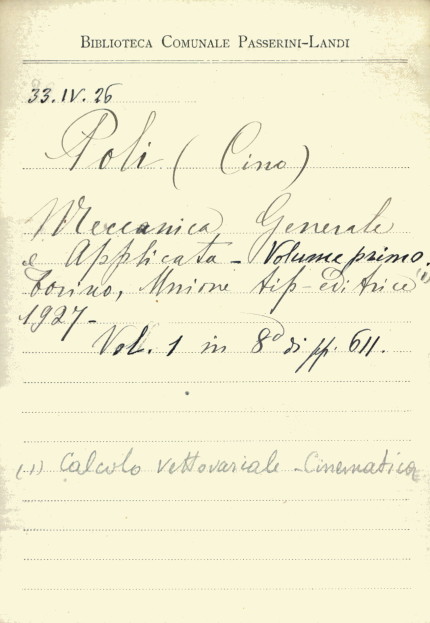 BIBLIOTECA COMUNALE PASSERINI-LANDI
33.IV.26
Poli (Cino)
Meccanica Generale
e Applicata - Volume primo.
(1)
Torino, Unione tip-editrice
1927-
Vol. 1 in 8° di pp. 611.
(1) Calcolo vettovariale - Cinematica